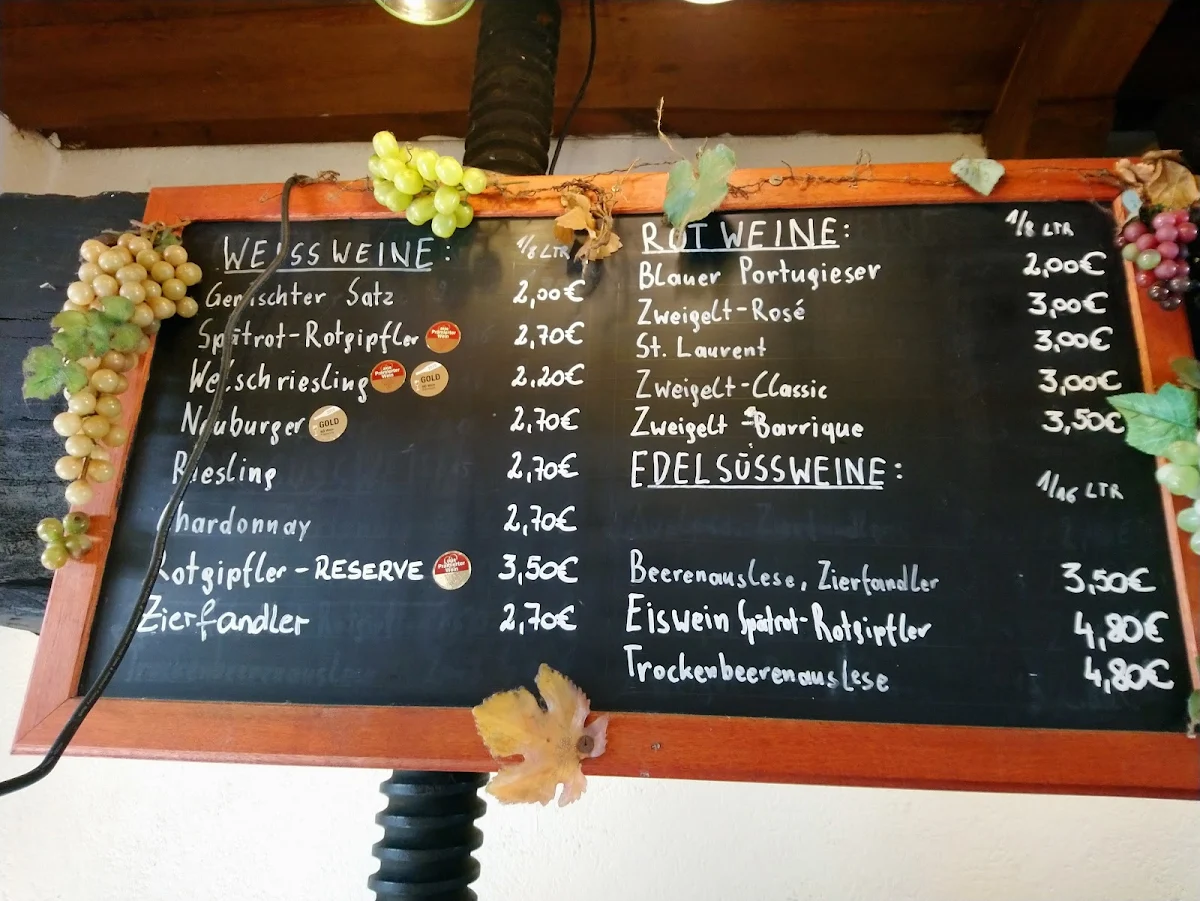 WEISSWEINE: 1/8 LTR
Gemischter Satz 2,00€
Spätrot-Rotgipfler 2,70€
Welschriesling GOLD 2,20€
Neuburger GOLD 2,70€
Riesling 2,70€
Chardonnay 2,70€
Rotgipfler - RESERVE 3,50€
Zierfandler 2,70€
ROTWEINE: 1/8 LTR
Blauer Portugieser 2,00€
Zweigelt-Rosé 3,00€
St. Laurent 3,00€
Zweigelt-Classic 3,00€
Zweigelt Barrique 3,50€
EDELSÜSSWEINE: 1/16 LTR
Beerenauslese, Zierfandler 3,50€
Eiswein Spätrot-Rotgipfler 4,80€
Trockenbeerenauslese 4,80€